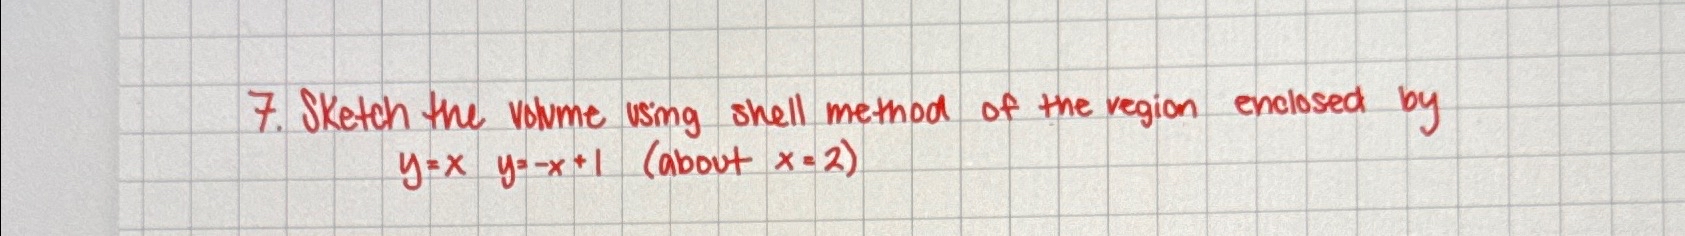 7. Sketch the volume using shell method of the region enclosed by
y=x y=-x+1 (about x=2)